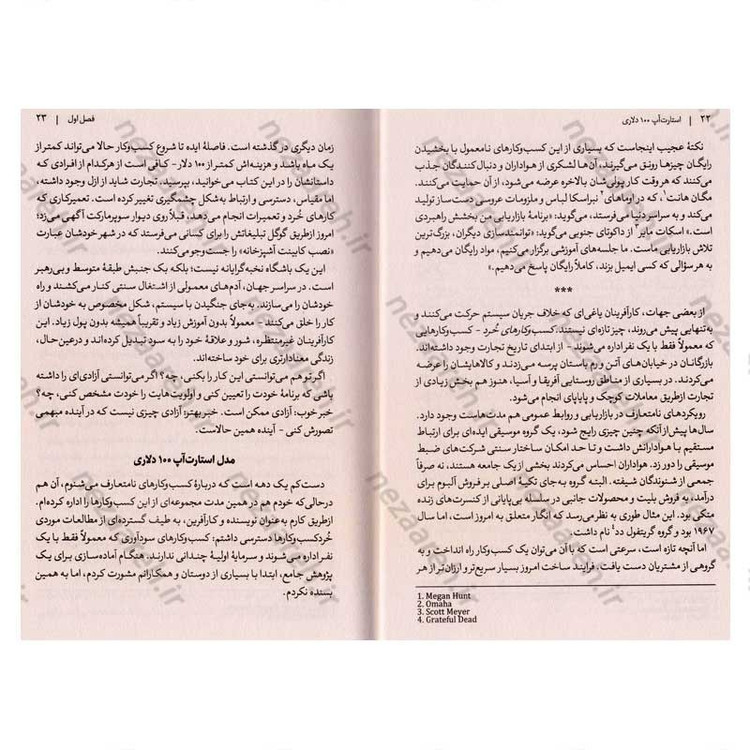 ۲۲ | استارت‌آپ ۱۰۰ دلاری
نکتهٔ عجیب اینجاست که بسیاری از این کسب‌وکارهای نامعمول با بخشیدن
رایگان چیزها رونق می‌گیرند. آن‌ها لشکری از هواداران و دنبال کنندگان جذب
می‌کنند که هر وقت کار پولی‌شان بالاخره عرضه می‌شود، از آن حمایت می‌کنند.
مگان هانت۱، که در اوماهای۲ نبراسکا لباس و ملزومات عروسی دست‌ساز تولید
می‌کند و به سراسر دنیا می‌فرستد، می‌گوید: «برنامهٔ بازاریابی من بخشش راهبردی
است.» اسکات مایر۳ از داکوتای جنوبی می‌گوید: «توانمندسازی دیگران، بزرگ‌ترین
تلاش بازاریابی ماست. ما جلسه‌های آموزشی برگزار می‌کنیم، مواد رایگان می‌دهیم و
به هر سؤالی که کسی ایمیل بزند، کاملاً رایگان پاسخ می‌دهیم.»
***
از بعضی جهات، کارآفرینان یاغی‌ای که خلاف جریان سیستم حرکت می‌کنند و
به‌تنهایی پیش می‌روند، چیز تازه‌ای نیستند. کسب‌وکارهای خُرد - کسب‌وکارهایی
که معمولاً فقط با یک نفر اداره می‌شوند - از ابتدای تاریخ تجارت وجود داشته‌اند.
بازرگانان در خیابان‌های آتن و رم باستان پرسه می‌زدند و کالاهایشان را عرضه
می‌کردند. در بسیاری از مناطق روستایی آفریقا و آسیا، هنوز هم بخش زیادی از
تجارت ازطریق معاملات کوچک و پایاپای انجام می‌شود.
رویکردهای نامتعارف در بازاریابی و روابط عمومی هم مدت‌هاست وجود دارد.
سال‌ها پیش از آنکه چنین چیزی رایج شود، یک گروه موسیقی ایده‌ای برای ارتباط
مستقیم با هوادارانش داشت و تا حد امکان ساختار سنتی شرکت‌های ضبط
موسیقی را دور زد. هواداران احساس می‌کردند بخشی از یک جامعه هستند، نه صرفاً
جمعی از شنوندگان شیفته. البته گروه به‌جای تکیهٔ اصلی بر فروش آلبوم برای
درآمد، به فروش بلیت و محصولات جانبی در سلسله بی‌پایانی از کنسرت‌های زنده
متکی بود. این مثال طوری به نظر می‌رسد که انگار متعلق به امروز است، اما سال
۱۹۶۷ بود و گروه گریتفول دد۴ نام داشت.
اما آنچه تازه است، سرعتی است که با آن می‌توان یک کسب‌وکار راه انداخت و به
گروهی از مشتریان دست یافت. فرایند ساخت امروز بسیار سریع‌تر و ارزان‌تر از هر
1. Megan Hunt
2. Omaha
3. Scott Meyer
4. Grateful Dead
فصل اول | ۲۳
زمان دیگری در گذشته است. فاصلهٔ ایده تا شروع کسب‌وکار حالا می‌تواند کمتر از
یک ماه باشد و هزینه‌اش کمتر از ۱۰۰ دلار - کافی است از هرکدام از افرادی که
داستانشان را در این کتاب می‌خوانید، بپرسید. تجارت شاید از ازل وجود داشته،
اما مقیاس، دسترسی و ارتباط به‌شکل چشمگیری تغییر کرده است. تعمیرکاری که
کارهای خُرد و تعمیرات انجام می‌دهد، قبلاً روی دیوار سوپرمارکت آگهی می‌زد؛
امروز ازطریق گوگل تبلیغاتش را برای کسانی می‌فرستد که در شهر خودشان عبارت
«نصب کابینت آشپزخانه» را جست‌وجو می‌کنند.
این یک باشگاه نخبه‌گرایانه نیست؛ بلکه یک جنبش طبقهٔ متوسط و بی‌رهبر
است. در سراسر جهان، آدم‌های معمولی از اشتغال سنتی کنار می‌کشند و راه
خودشان را می‌سازند. به‌جای جنگیدن با سیستم، شکل مخصوص به خودشان از
کار را خلق می‌کنند - معمولاً بدون آموزش زیاد و تقریباً همیشه بدون پول زیاد. این
کارآفرینان غیرمنتظره، شور و علاقهٔ خود را به سود تبدیل کرده‌اند و درعین‌حال،
زندگی معنادارتری برای خود ساخته‌اند.
اگر تو هم می‌توانستی این کار را بکنی، چه؟ اگر می‌توانستی آزادی‌ای را داشته
باشی که برنامهٔ خودت را تعیین کنی و اولویت‌هایت را خودت مشخص کنی، چه؟
خبر خوب: آزادی ممکن است. خبر بهتر: آزادی چیزی نیست که در آینده مبهمی
تصورش کنی - آینده همین حالاست.
مدل استارت‌آپ ۱۰۰ دلاری
دست‌کم یک دهه است که دربارهٔ کسب‌وکارهای نامتعارف می‌شنوم، آن هم
درحالی که خودم هم در همین مدت مجموعه‌ای از این کسب‌وکارها را اداره کرده‌ام.
ازطریق کارم به‌عنوان نویسنده و کارآفرین، به طیف گسترده‌ای از مطالعات موردی
خُردکسب‌وکارها دسترسی داشتم: کسب‌وکارهای سودآوری که معمولاً فقط با یک
نفر اداره می‌شوند و سرمایهٔ اولیهٔ چندانی ندارند. هنگام آماده‌سازی برای یک
پژوهش جامع، ابتدا با بسیاری از دوستان و همکارانم مشورت کردم، اما به همین
بسنده نکردم.
nezaaheh.ir